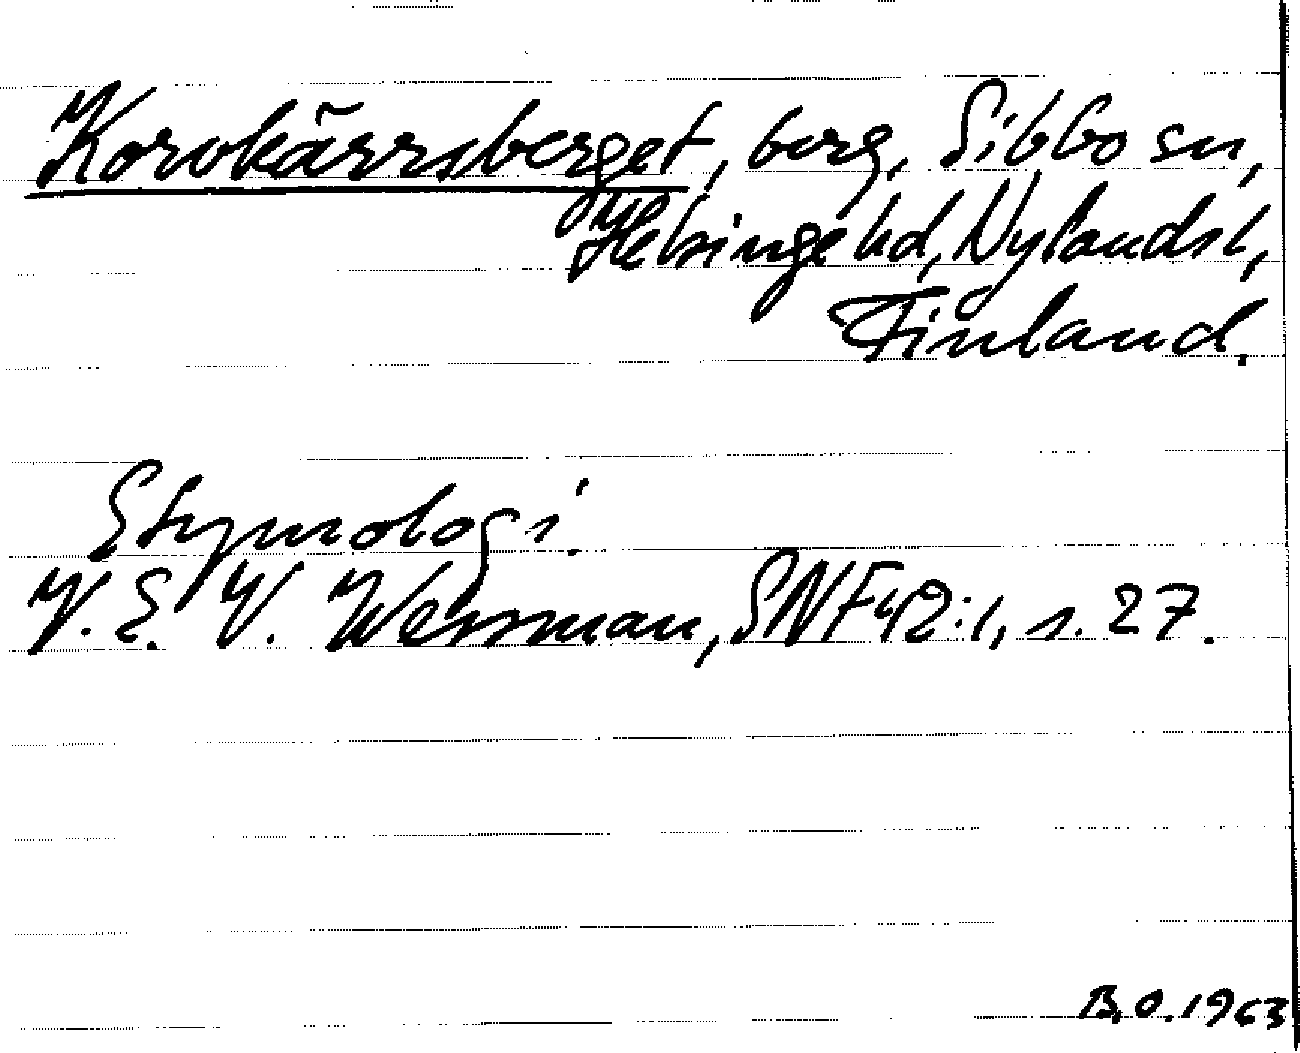 Korvkärrsberget, berg, Sibbo sn,
Helsinge hd, Nylands l,
Finland.
Etymologi.
V. E. V. Wessman, SNF 42:1, s. 27.
B.O. 1963